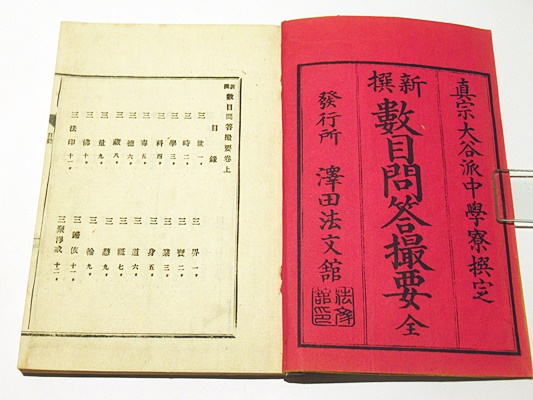 真宗大谷派中學寮撰定
新撰 數目問答撮要 全
發行所 澤田法文舘
新撰 數目問答撮要卷上
目錄
三世一。 三界一。
三時二。 三寶二。
三學三。 三業三。
三科四。 三身五。
三毒五。 三道六。
三德六。 三祗七。
三藏八。 三慧九。
三量九。 三輪九。
三佛十。 三歸依十一。
三法印十一。 三聚淨戒十二。